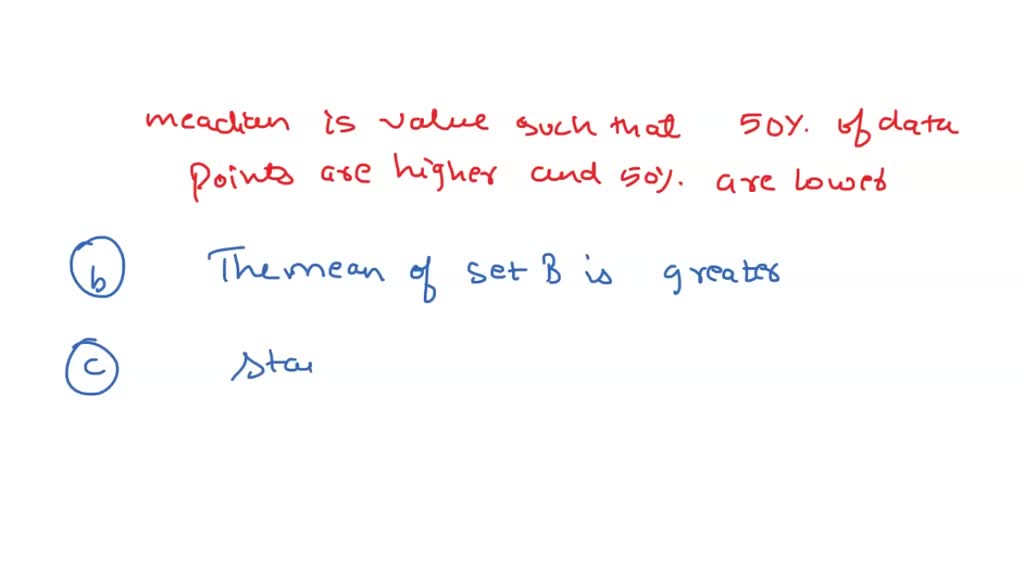 meadian is value such that 50%. of data
points are higher and 50%. are lower
b The mean of set B is greater
c sta